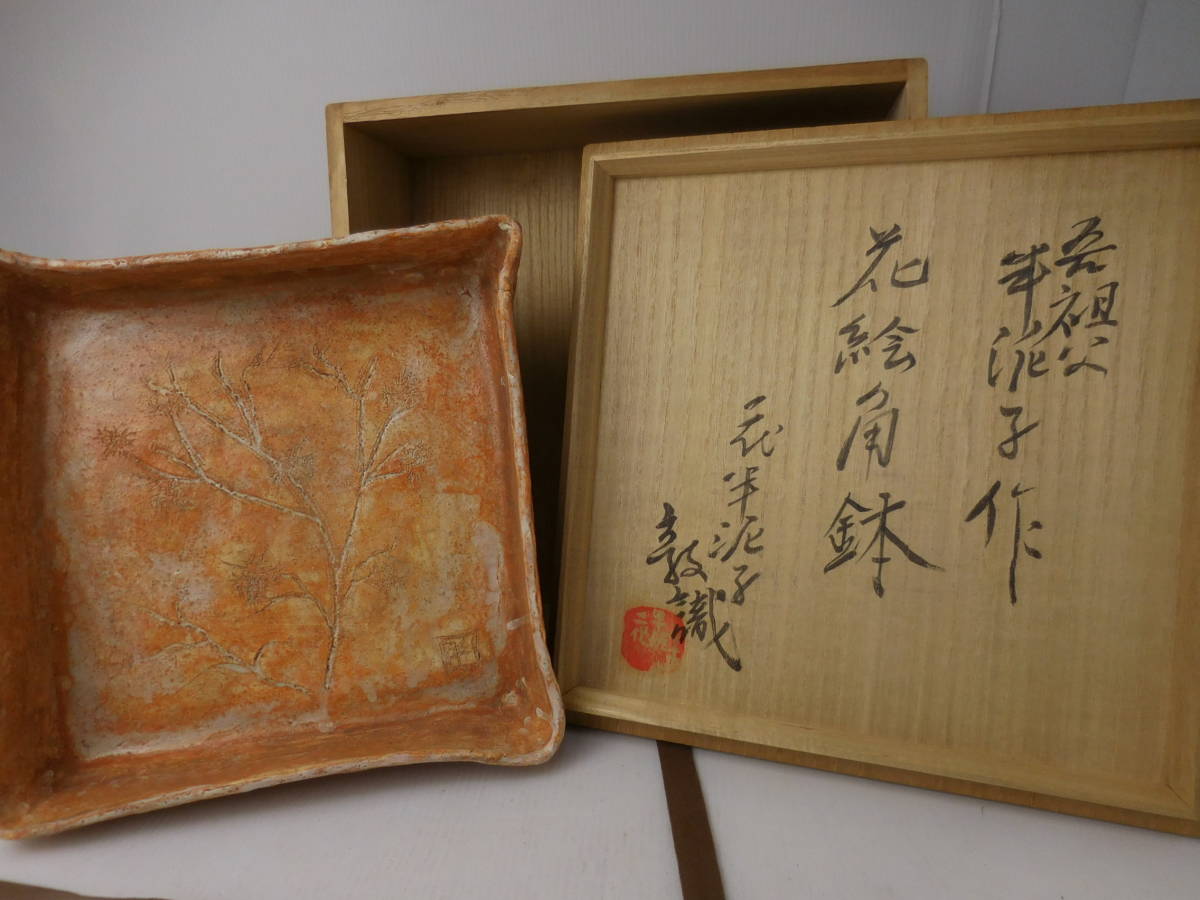 吾祖父
半泥子作
花絵角鉢
花半泥子
敦識